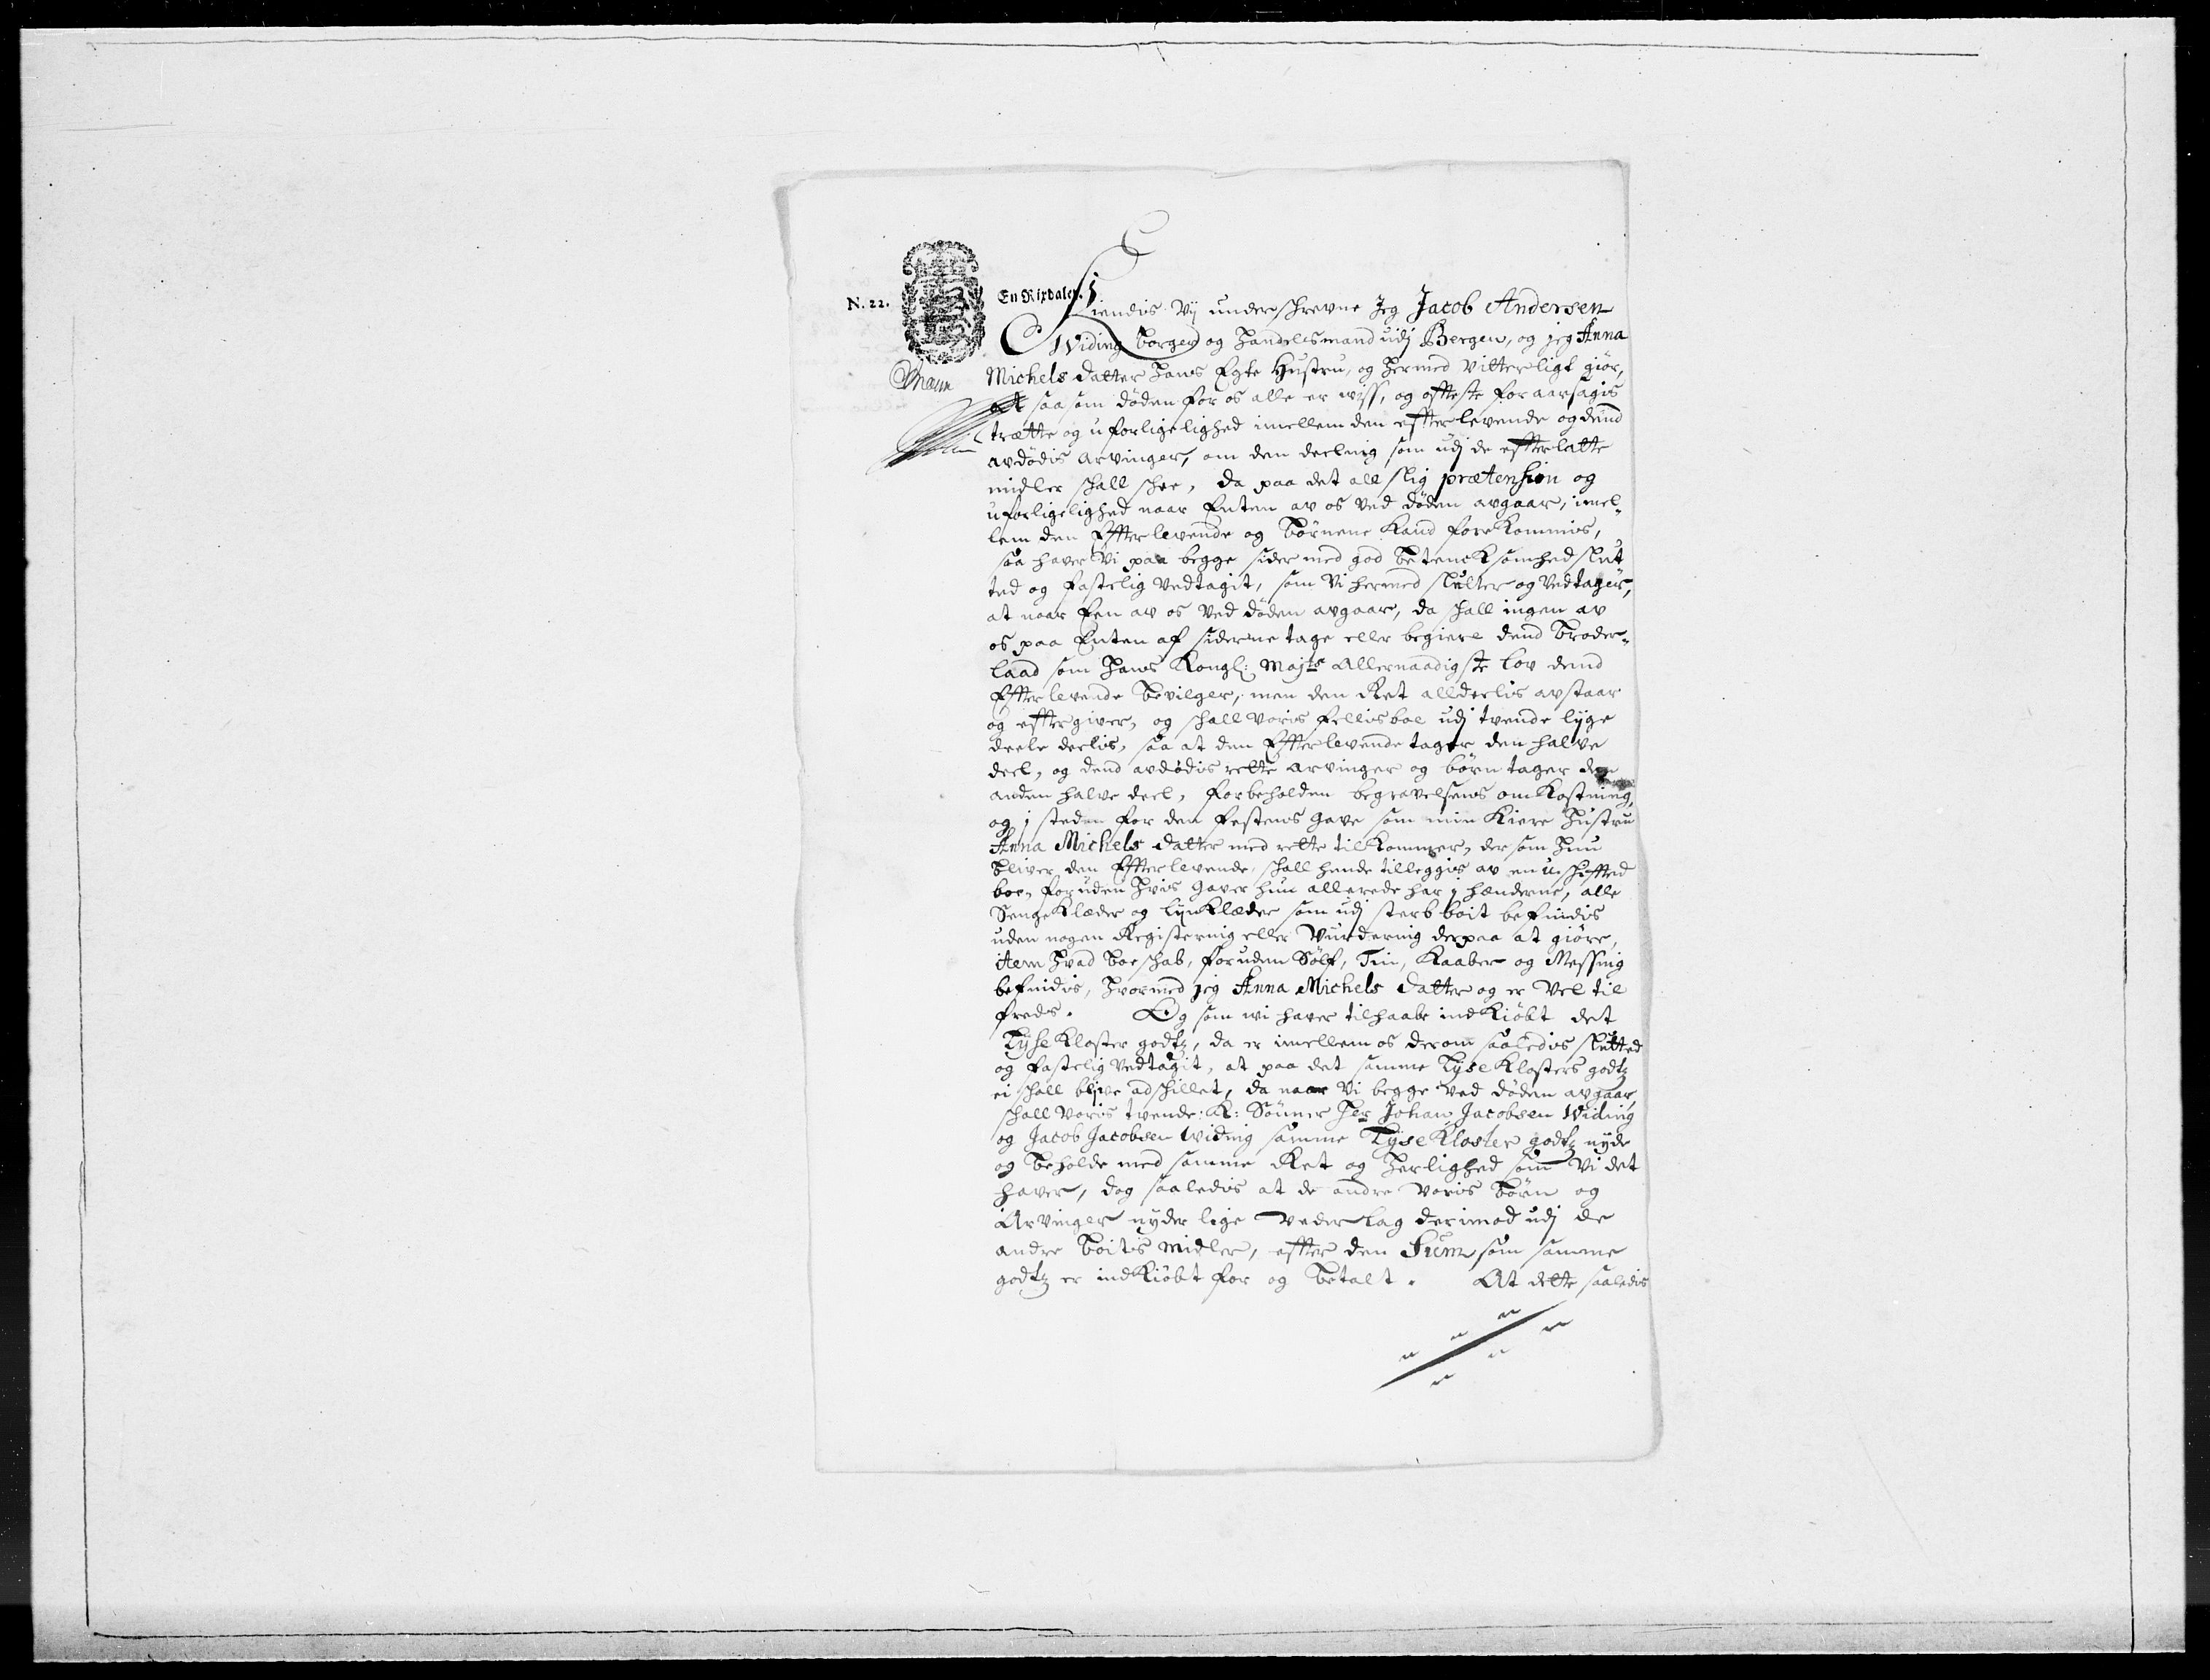 N. 22.
En Rixdaler.
Kiendis Vij underschrevne Jeg Jacob Andersen
Widing borger og Handelsmand udj Bergen, og jeg Anna
Michels datter Hans Egte Hustru, og Hermed Vitterligt giør,
at saasom døden for os alle er wiss, og offteste foraarsagis
trætte og uforligelighed imellem den effterlevende og dend
avdødis arvinger, om den deelnig som udj de effterlatte
midler schall schee, da paa det all slig prætension og
uforligelighed naar Enten av os ved døden avgaar, imel„
lem den Effterlevende og Børnene kand forekommis,
saa haver Vi paa begge sider med god Betencksomhed slut
ted og fastelig Vedtagit, som Vi hermed slutter og Vedtager,
at naar Een av os Ved døden avgaar, da schall ingen av
os paa Enten af siderne tage eller begiere dend Broder„
laad som Hans Kongl: Majts Allernaadigste lov dend
Effterlevende bevilger, men den Ret alldeelis avstaar
og efftergiver, og schall voris fellisboe udj tvende lyge
deele deelis, saa at den Effterlevende tager den halve
deel, og dend avdødis rette arvinger og børn tager den
anden halve deel, forbeholden begravelsens omkostning,
og i steden for den festens gave som min kiere Hustru
Anna Michels datter med rette tilkommer, dersom Hun
bliver den Effterlevende, schall hende tilleggis av en uschifted
boe, foruden Hvis gaver hun allerede har i hænderne, alle
Sengeklæder og linklæder som udj sterbboit befindis
uden nogen Registernig eller Vurdernig derpaa at giøre,
item Hvad boeschab, foruden Sølf, Tin, Kaaber og Messing
befindis, Hvormed jeg Anna Michels datter og er Vel til
freds. Og som wi haver tilhaabe indkiøbt det
Lyse kloster godtz, da er imellem os derom saaledis slutted
og fastelig Vedtagit, at paa det samme Lyse klosters godtz
ei schall blive adschillet, da naar Vi begge Ved døden avgaar,
schall voris tvende: K: Sønner Her Johan Jacobsen Widing
og Jacob Jacobsen Widing samme Lyse kloster godtz nyde
og beholde med samme Ret og Herlighed som Vi det
haver, dog saaledis at de andre voris Børn og
Arvinger nyder lige Vederlag derimod udj de
andre boitis midler, effter den Sum som samme
godtz er indkiøbt for og betalt. At dette saaledis